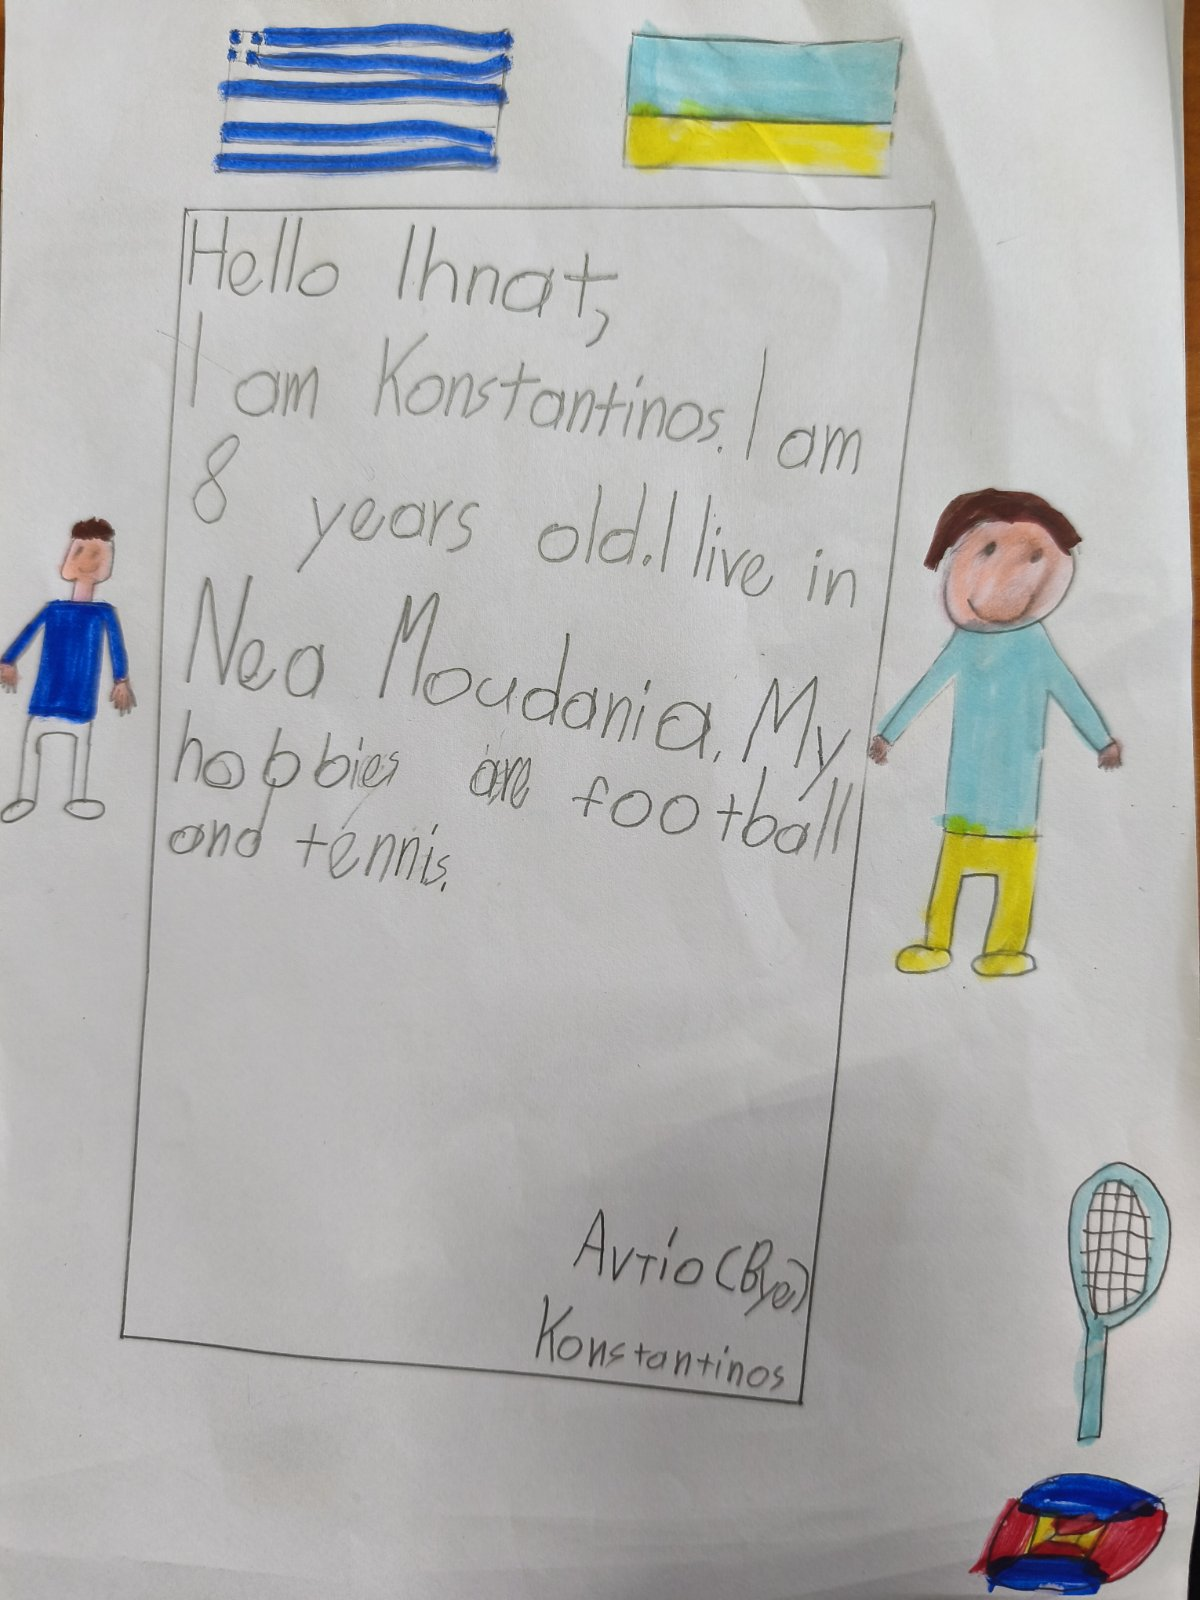 Hello Ihnat,
I am Konstantinos. I am
8 years old. I live in
Nea Moudania. My
hobbies are football
and tennis.
Αντίο (Bye)
Konstantinos